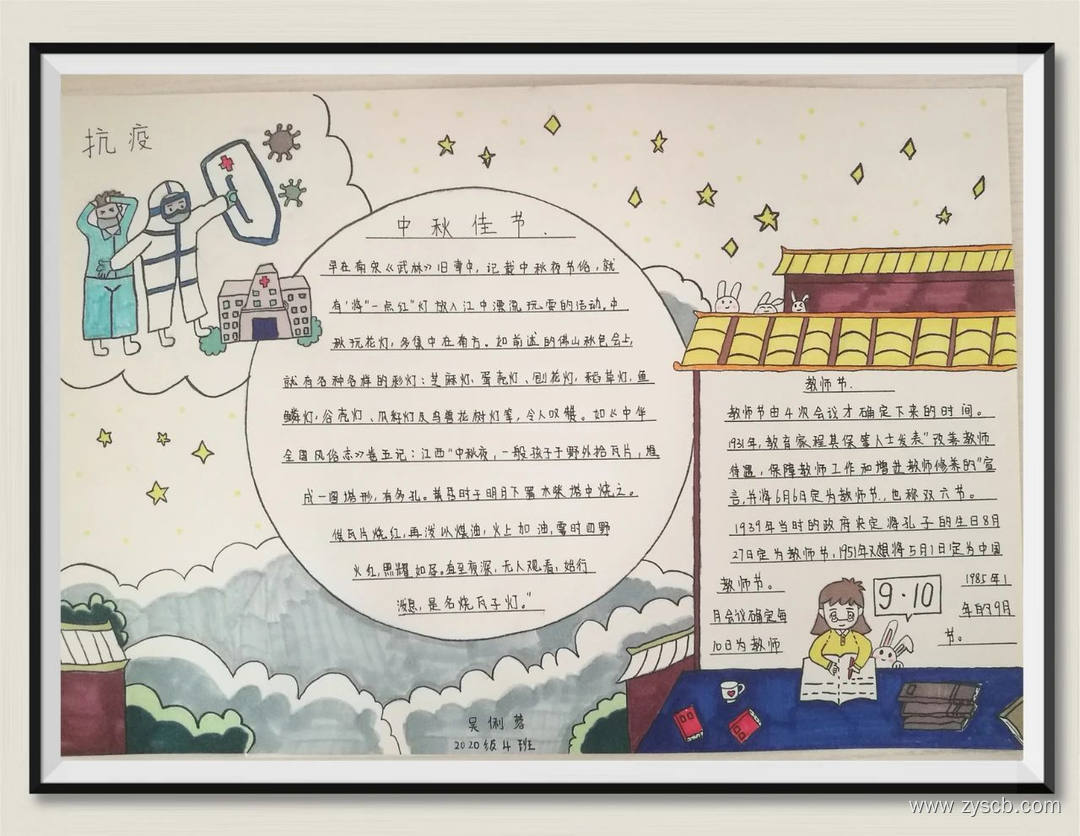 抗疫
中秋佳节.
早在南宋《武林》旧事中,记载中秋夜节俗,就
有'将"一点红"灯放入江中漂流玩耍的活动。中
秋玩花灯,多集中在南方。如前述的佛山秋色会上,
就有各种各样的彩灯:芝麻灯、蛋壳灯、刨花灯,稻草灯.鱼
鳞灯,谷壳灯、瓜籽灯及鸟兽花树灯等,令人叹赞。如《中华
全国风俗志》卷五记:江西"中秋夜,一般孩子于野外拾瓦片,堆
成一圆塔形,有多孔。黄昏时于明月下置木柴塔中烧之。
俟瓦片烧红,再泼以煤油,火上加油,霎时四野
火红,照耀如昼。直至夜深,无人观看,始行
泼息,是名烧瓦子灯。"
教师节.
教师节由4次会议才确定下来的时间。
1931年,教育家程其保等人士发表"改善教师
待遇,保障教师工作和增进教师修养的"宣
言,并将6月6日定为教师节,也称双六节。
1939年当时的政府决定将孔子的生日8月
27日定为教师节,1951年又想将5月1日定为中国
教师节。 1985年1
月会议确定每 年的9月
10日为教师 节。
9·10
吴俐蓉
2020级4班
www.zyscb.com